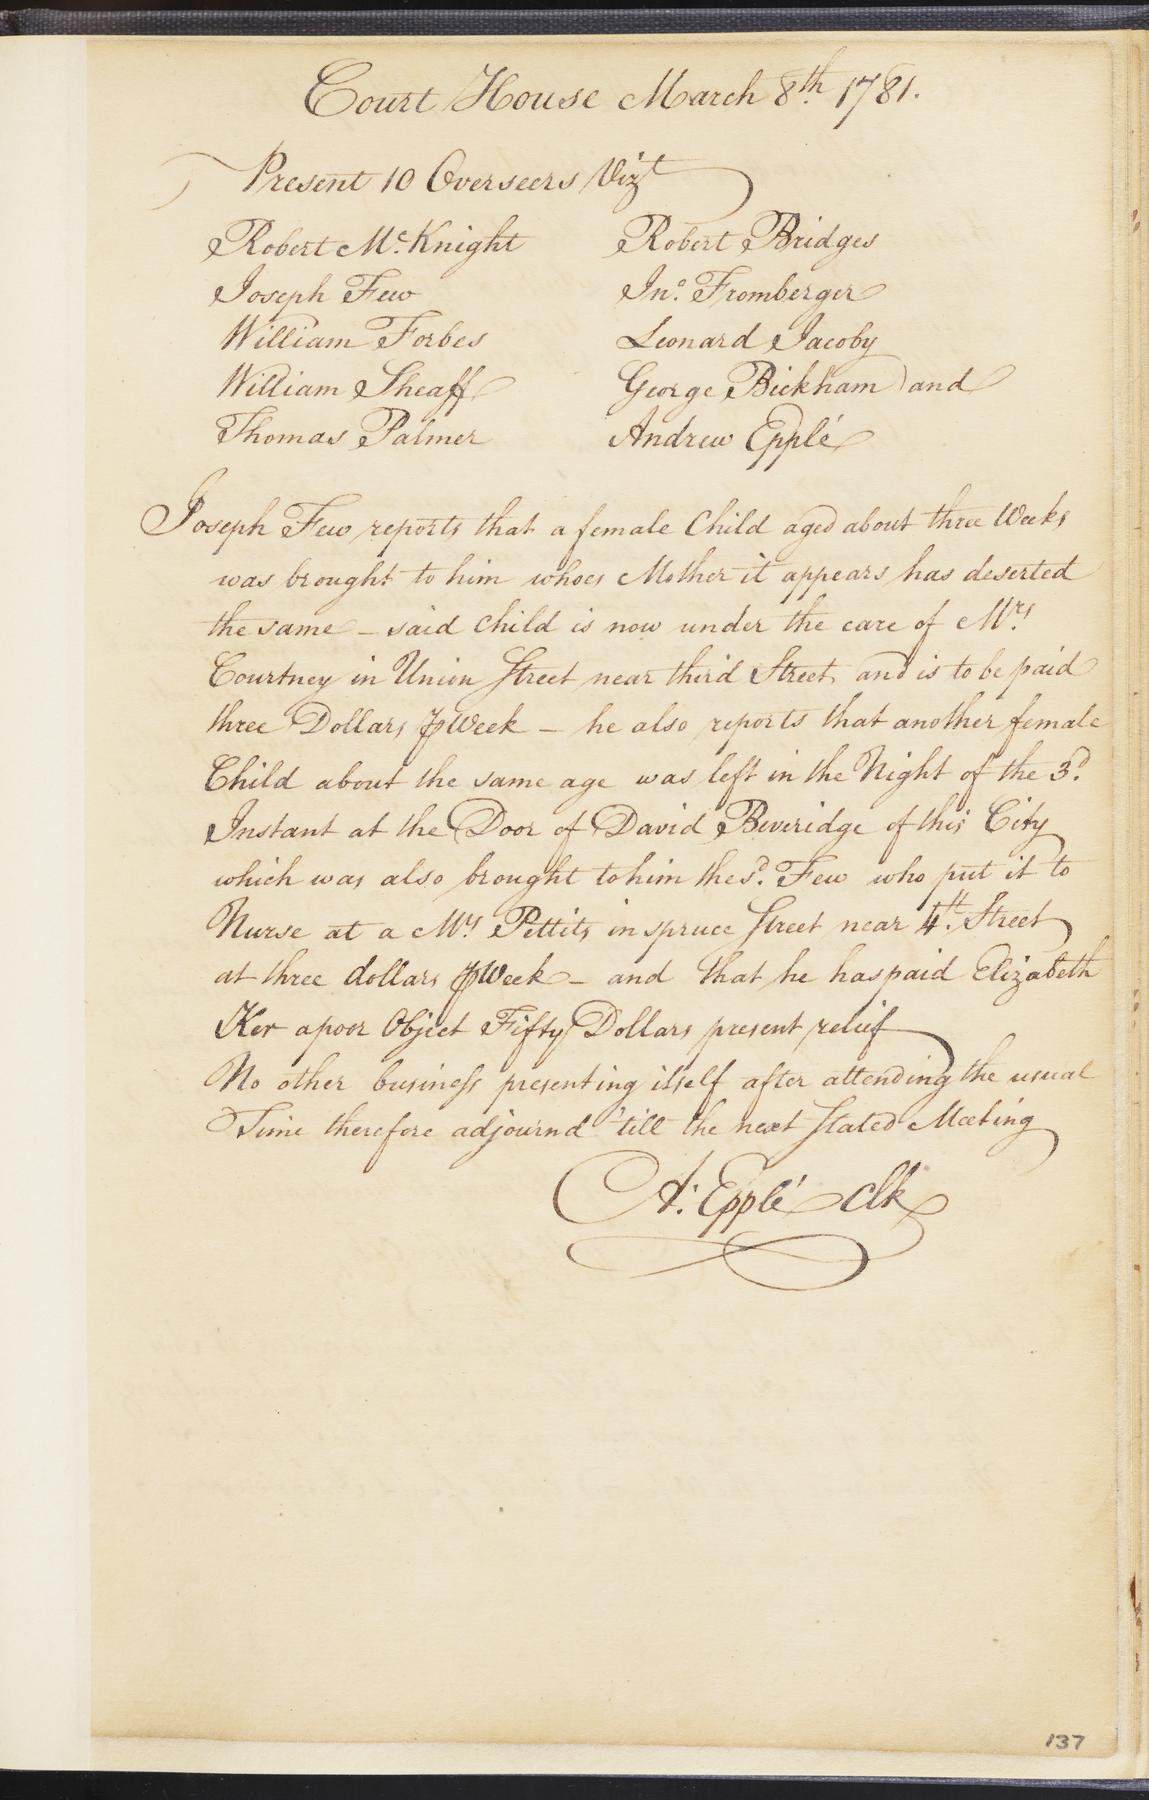 Court House March 8th. 1781.
Present 10 Overseers Vizt
Robert Mc.Knight
Joseph Few
William Forbes
William Sheaff
Thomas Palmer
Robert Bridges
Jno. Fromberger
Leonard Jacoby
George Bickham and
Andrew Epplé
Joseph Few reports that a female Child aged about three Weeks
was brought to him whoes Mother it appears has deserted
the same – said child is now under the care of Mrs.
Courtney in Union Street near third Street and is to be paid
three Dollars ⅌ Week – he also reports that another female
Child about the same age was left in the Night of the 3d.
Instant at the Door of David Beveridge of this City
which was also brought to him the sd. Few who put it to
Nurse at a Mrs. Pettits in spruce Street near 4th. Street
at three dollars ⅌ Week – and that he has paid Elizabeth
Ker a poor Object Fifty Dollars present relief
No other business presenting itself after attending the usual
Time therefore adjournd 'till the next Stated Meeting
A. Epplé clk
137